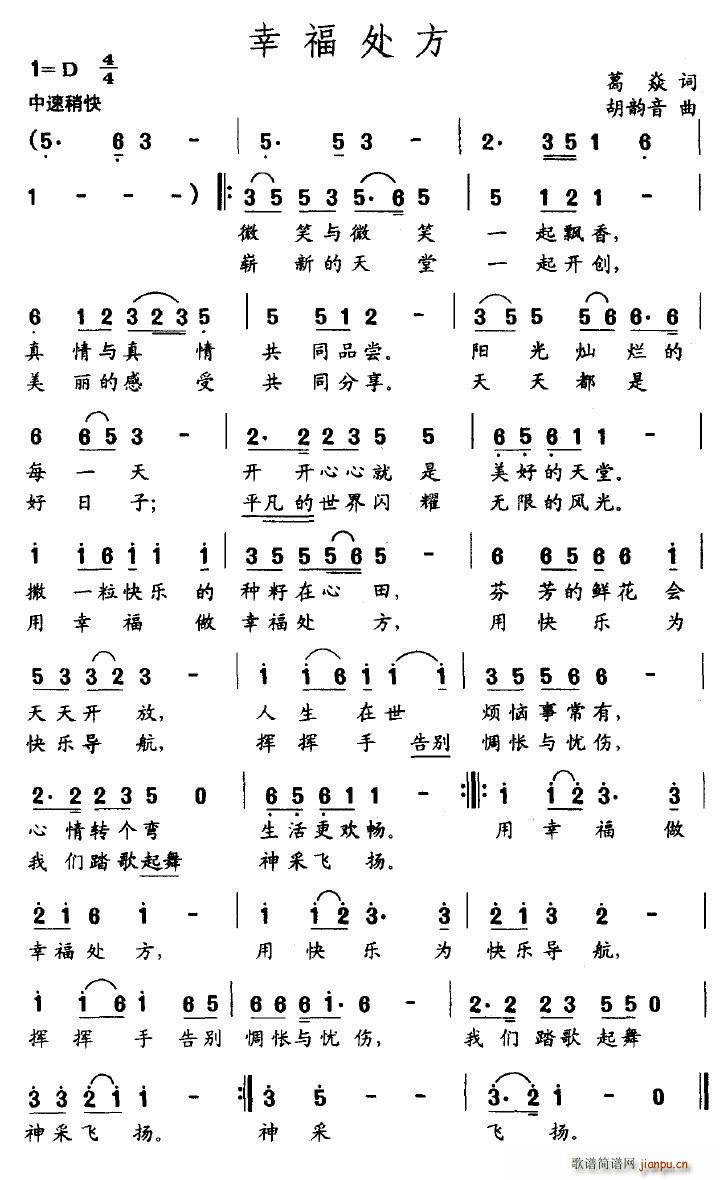 幸福处方
1=D 4/4
葛焱 词
中速稍快
胡韵音 曲
(5· 6 3 - | 5· 5 3 - | 2· 3 5 1 6 |
1 - - -) ‖: 3 5 5 3 5· 6 5 | 5 1 2 1 - |
微笑与微笑 一起飘香，
崭新的天堂 一起开创，
6 1 2 3 2 3 5 | 5 5 1 2 - | 3 5 5 5 6 6· 6 |
真情与真情 共同品尝。 阳光灿烂的
美丽的感受 共同分享。 天天都是
6 6 5 3 - | 2· 2 2 3 5 5 | 6 5 6 1 1 - |
每一天 开开心心就是 美好的天堂。
好日子； 平凡的世界闪耀 无限的风光。
1 1 6 1 1 1 | 3 5 5 5 6 5 - | 6 6 5 6 6 1 |
撒一粒快乐的 种籽在心田， 芬芳的鲜花会
用幸福做 幸福处方， 用快乐为
5 3 3 2 3 - | 1 1 6 1 1 1 | 3 5 5 6 6 - |
天天开放， 人生在世 烦恼事常有，
快乐导航， 挥挥手告别 惆怅与忧伤，
2· 2 2 3 5 0 | 6 5 6 1 1 - :‖: 1 1 2 3· 3 |
心情转个弯 生活更欢畅。 用幸福做
我们踏歌起舞 神采飞扬。
2 1 6 1 - | 1 1 2 3· 3 | 2 1 3 2 - |
幸福处方， 用快乐为 快乐导航，
1 1 6 1 6 5 | 6 6 6 1· 6 - | 2· 2 2 3 5 5 0 |
挥挥手告别 惆怅与忧伤， 我们踏歌起舞
3 3 2 1 1 - :‖ 3 5 - - | 3· 2 1 - 0 ‖
神采飞扬。 神采 飞扬。
歌谱简谱网 jianpu.cn